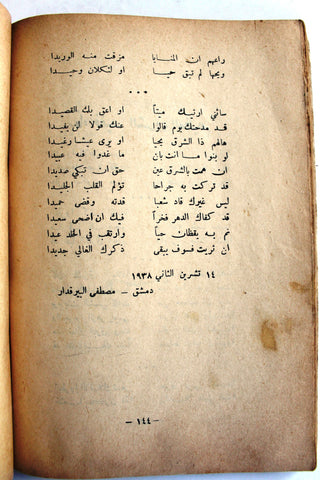 راعهم ان المنايا مزقت منه الوريدا
ويحها لم تبق حياً او لثكلان وحيدا
* * *
سائني ارثيك ميتاً او اعق بك القصيدا
قد مدحتك يوم قالوا عنك قولا لن يفيدا
هالهم ذا الشرق يحيا او يرى عيشا رغيدا
لو بنوا ما انت بان ما غدوا فيه عبيدا
ان همت بالشرق عين حق ان تبكي صديدا
قد تركت به جراحا تؤلم القلب الجليدا
ليس غيرك قاد شعبا قدته وقضى حميدا
قد كفاك الدهر فخراً فيك ان اضحى سعيدا
نم به يقظان حياً وارتقب في الخلد عيدا
ان تربت فسوف يبقى ذكرك الغالي جديدا
١٤ تشرين الثاني ١٩٣٨
دمشق – مصطفى البيرقدار
– ١٤٤ –